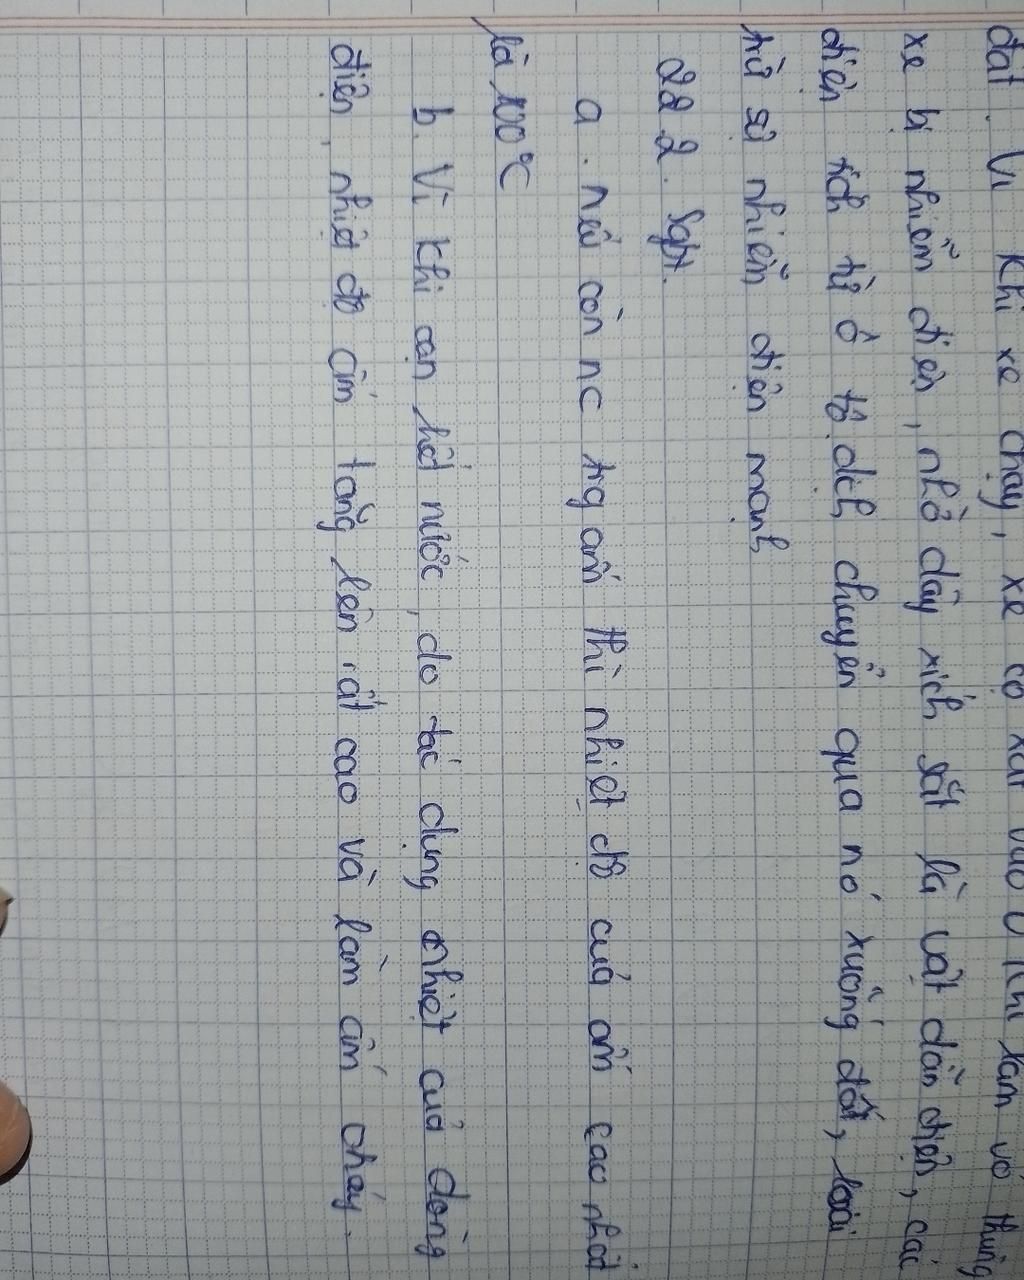 đất. Vì khi xe chạy, xe cọ xát vào 0 khí làm vỏ thùng
xe bị nhiễm điện, nhờ dây xích sắt là vật dẫn điện, các
điện tích từ ô tô dịch chuyển qua nó xuống đất, loại
trừ sự nhiễm điện mạnh
22 2. Sgbt.
a. nếu còn nc trg ấm thì nhiệt độ của ấm cao nhất
là 100°C
b. Vì khi cạn hết nước, do tác dụng nhiệt của dòng
điện, nhiệt độ ấm tăng lên rất cao và làm ấm cháy.